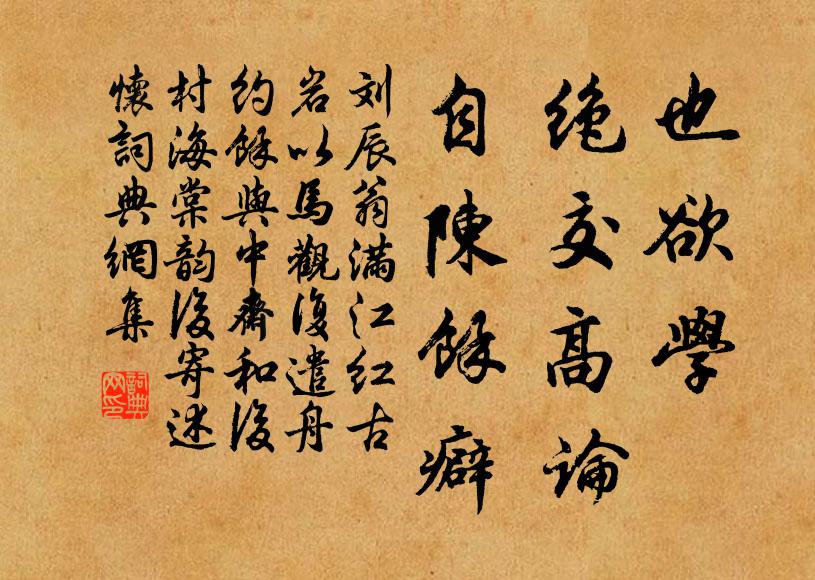 也欲學
絶交高論
自陳餘癖
刘辰翁满江红古
岩以馬觀復遣舟
約餘與中齋和後
村海棠韵後寄述
懷詞典網集
詞典
网印